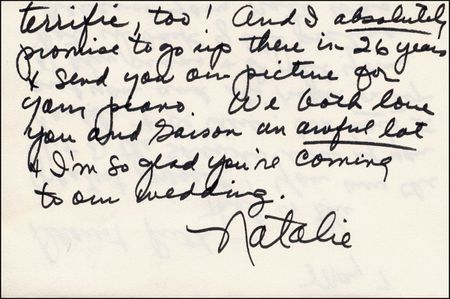 terrific, too! And I absolutely
promise to go up there in 26 years
& send you our picture for
your piano. We both love
you and Saison an awful lot
& I'm so glad you're coming
to our wedding.
Natalie